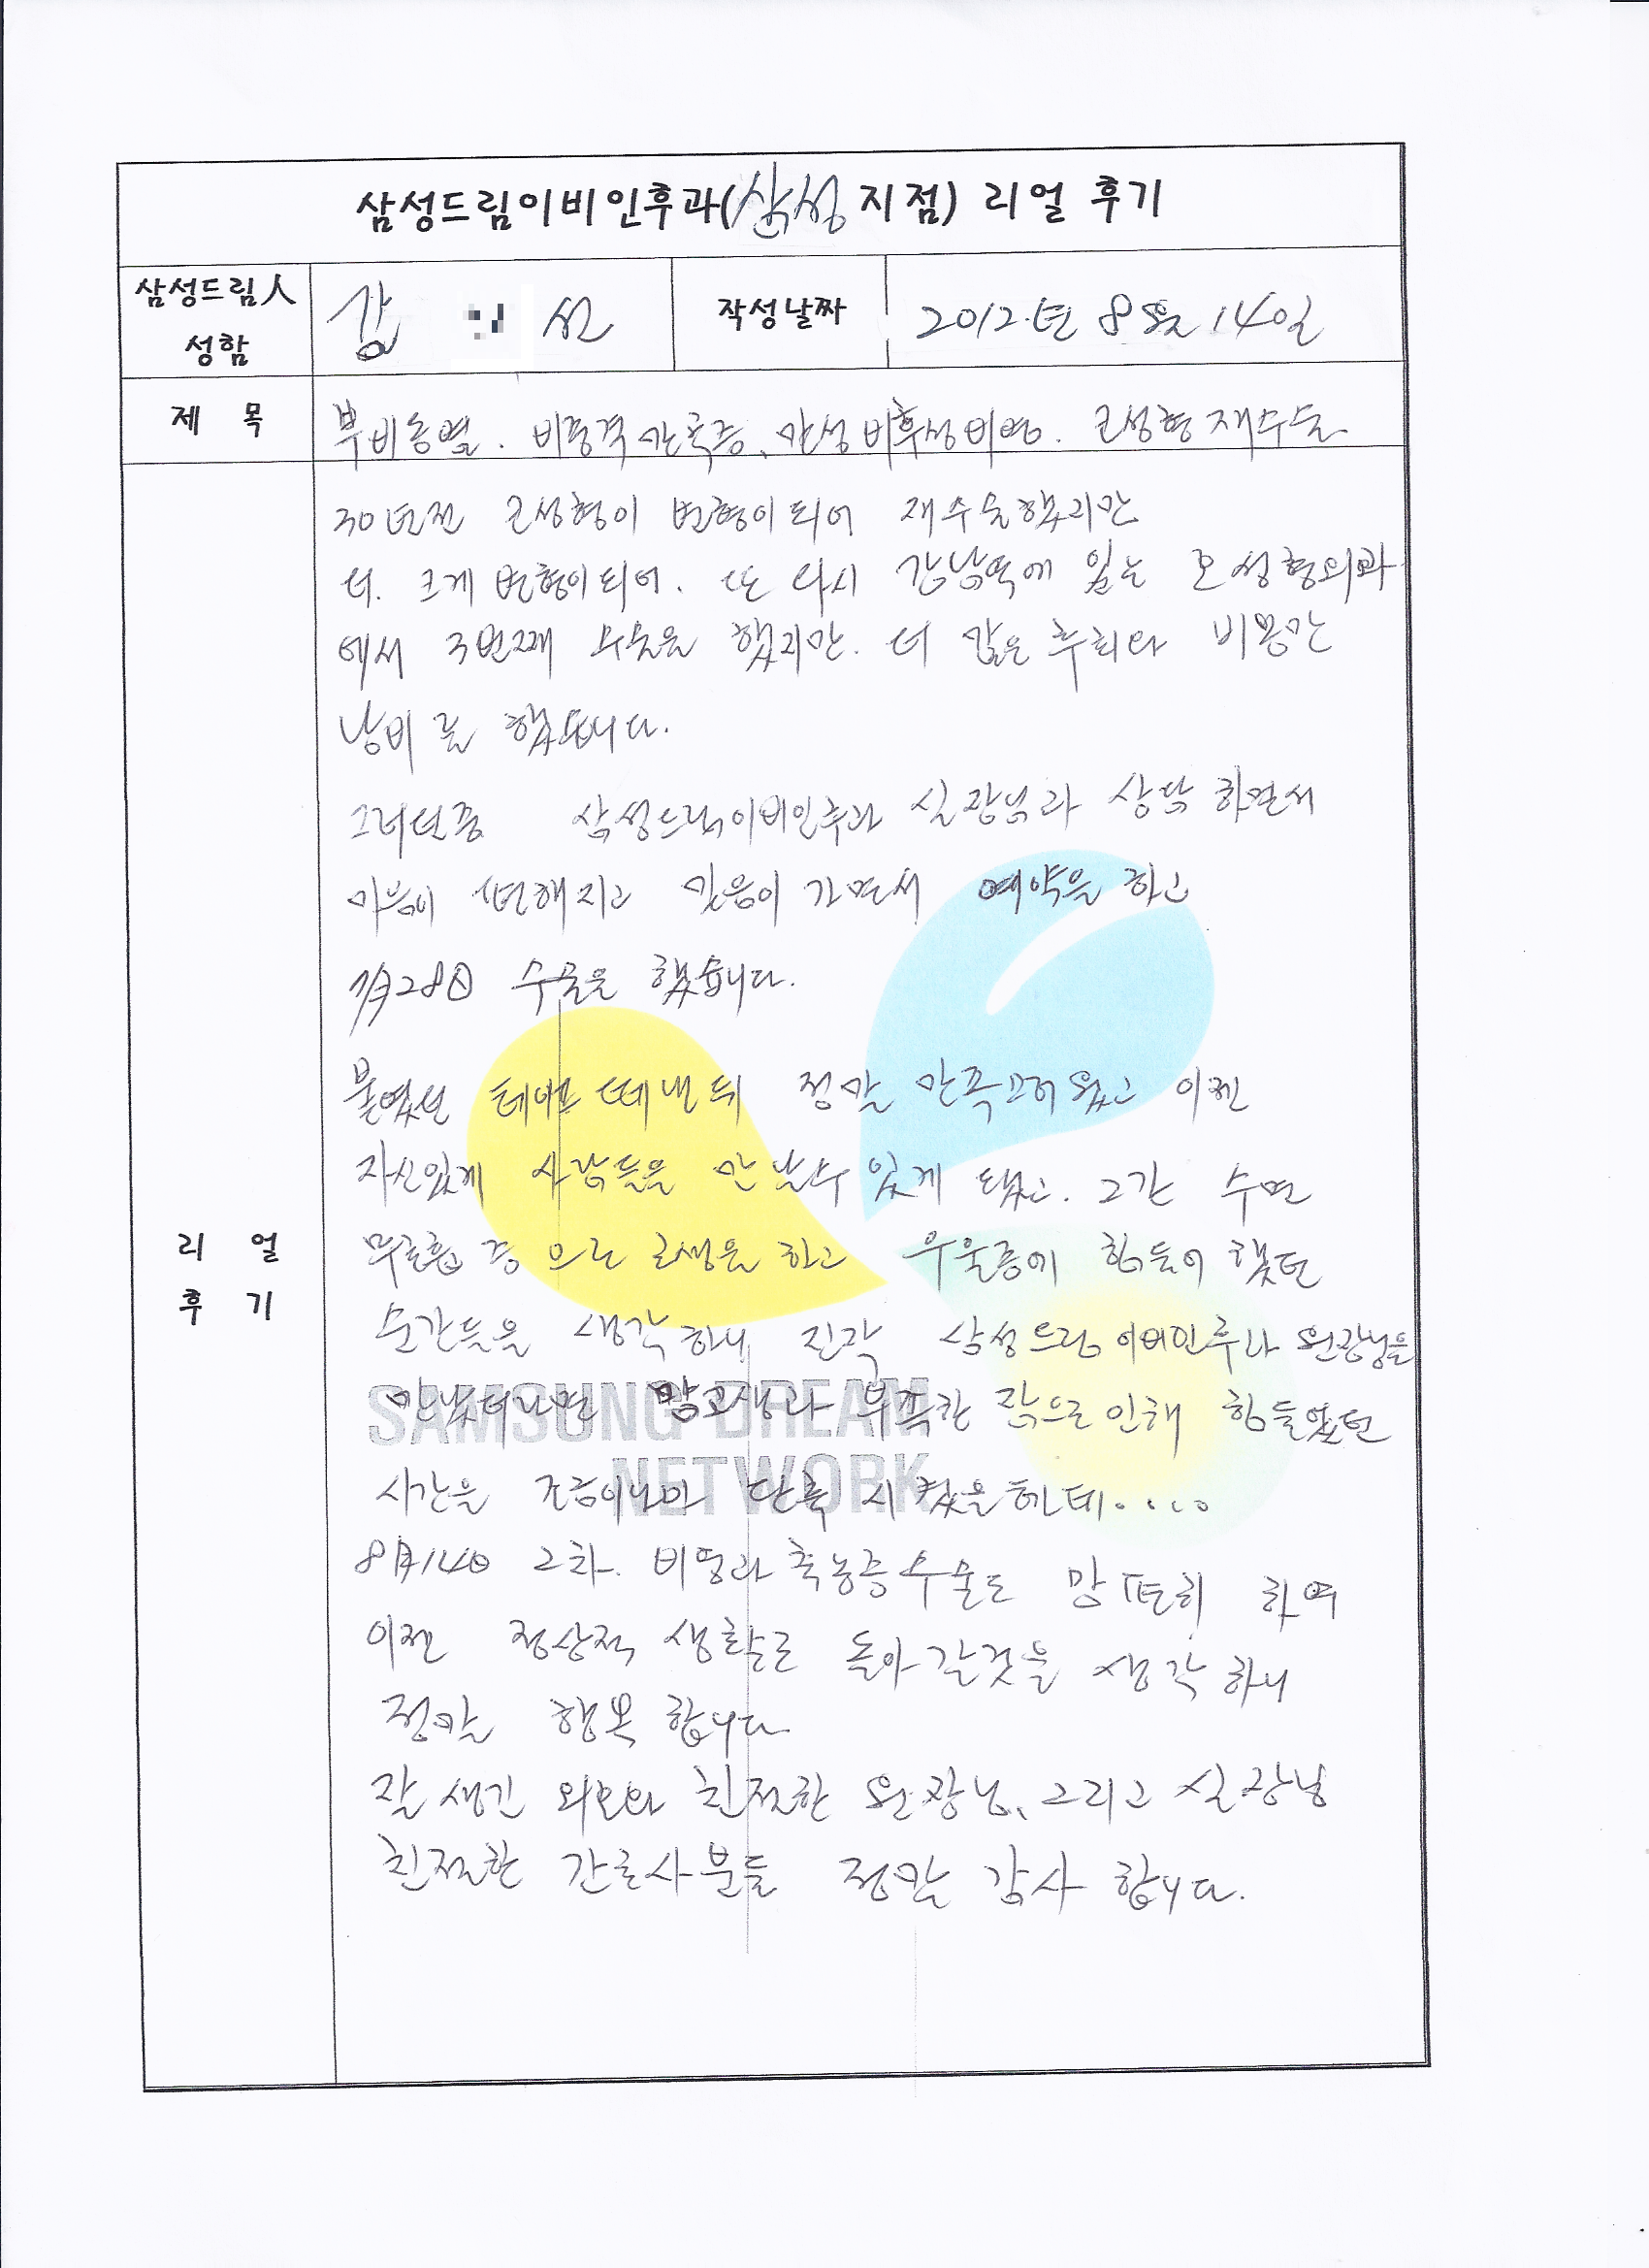 삼성드림이비인후과(삼성지점) 리얼 후기
삼성드림人 성함
김 선
작성날짜
2012년 8월 14일
제 목
부비동염. 비중격만곡증, 만성비후성비염. 코성형재수술
리 얼 후 기
30년전 코성형이 변형이되어 재수술했지만
더. 크게 변형이되어. 또 다시 강남역에 있는 모성형외과
에서 3번째 수술을 했지만. 더 많은 후회와 비용만
낭비를 했습니다.
그러던중 삼성드림이비인후과 실장님과 상담 하면서
마음이 편해지고 믿음이 가면서 예약을 하고
7月28日 수술을 했습니다.
붙였던 테이프 떼낸 뒤 정말 만족스러웠고 이젠
자신있게 사람들을 만날수있게 됐고. 그간 수면
무호흡증 으로 고생을 하고 우울증에 힘들어 했던
순간들을 생각하니 진작 삼성드림이비인후과 원장님을
만났더라면 맘고생과 부족한 잠으로인해 힘들었던
시간을 조금이나마 단축 시켰을텐데....
SAMSUNG DREAM
NETWORK
8月14日 2차. 비염과 축농증수술도 하여
이젠 정상적 생활로 돌아갈것을 생각하니
정말 행복합니다
잘생긴 외모와 친절한 원장님, 그리고 실장님
친절한 간호사분들 정말 감사 합니다.